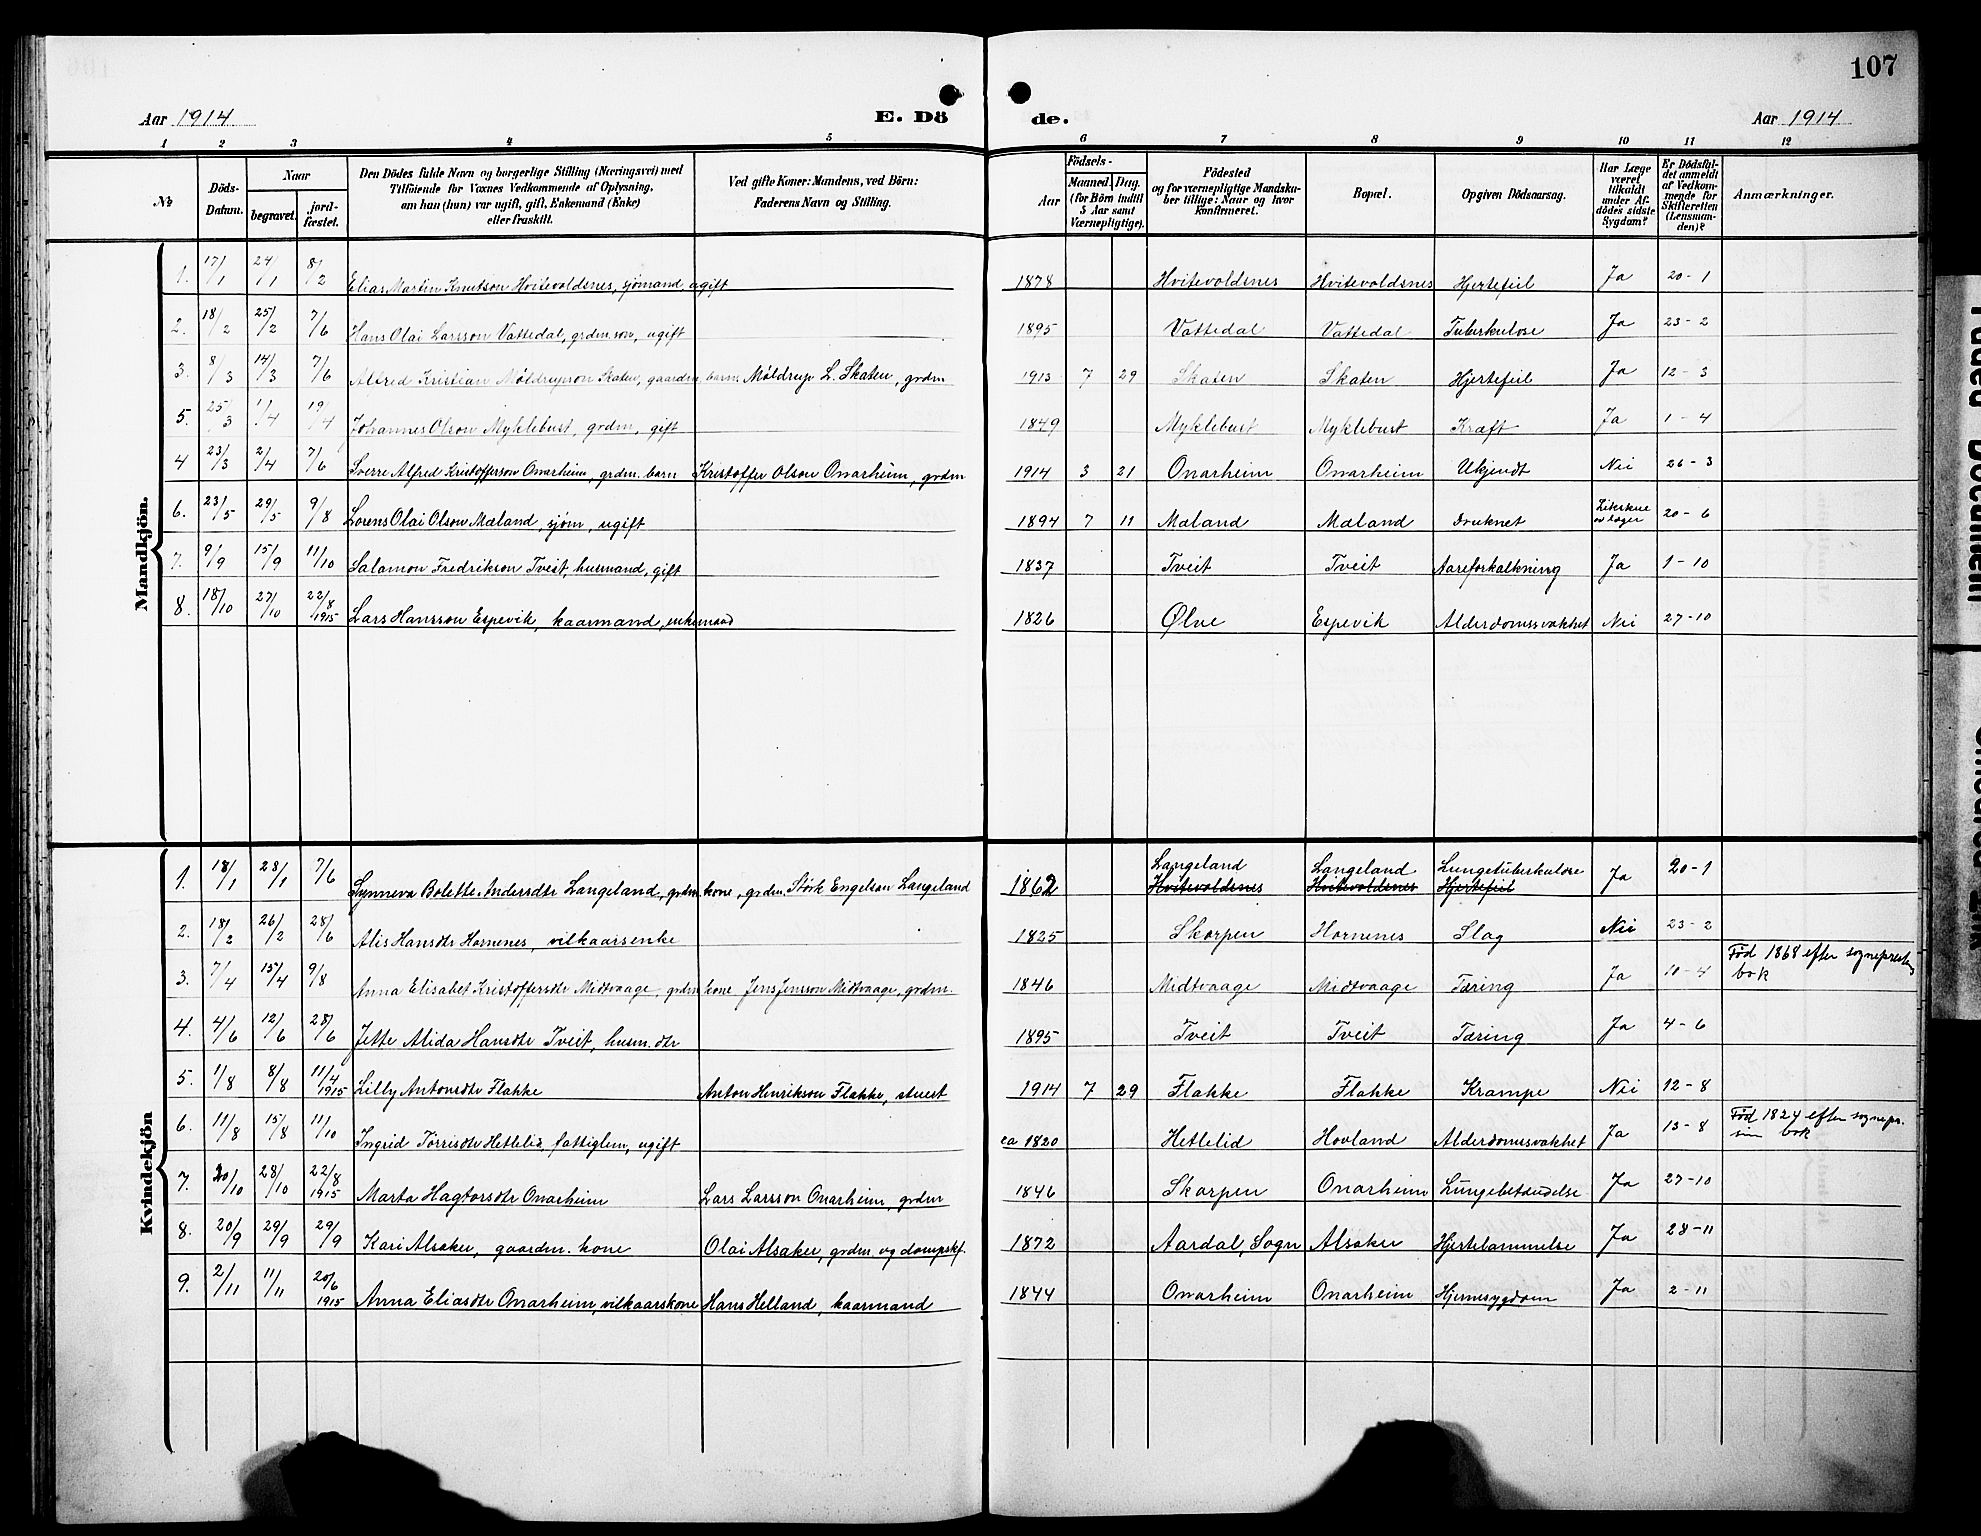 107
Aar 1914 E. Dö de. Aar 1914
1 2 3 4 5 6 7 8 9 10 11 12
№ Döds-Datum. Naar begravet. jord-fæstet. Den Dödes fulde Navn og borgerlige Stilling (Næringsvei) med Tilföiende for Voxnes Vedkommende af Oplysning, om han (hun) var ugift, gift, Enkemand (Enke) eller fraskilt. Ved gifte Koner: Mandens, ved Börn: Faderens Navn og Stilling. Födsels- Aar Maaned. Dag. (for Börn indtil 5 Aar samt Værnepligtige). Födested og for værnepligtige Mandskaber tillige: Naar og hvor konfirmeret. Bopæl. Opgiven Dödsaarsag. Har Læge været tilkaldt under Afdödes sidste Sygdom? Er Dödsfaldet anmeldt af Vedkommende for Skifteretten (Lensmanden)? Anmærkninger.
Mandkjön.
1. 17/1 24/1 8/2 Elias Martin Knutson Hvitevoldsnes, sjömand, ugift 1878 Hvitevoldsnes Hvitevoldsnes Hjertefeil Ja 20-1
2. 18/2 25/2 7/6 Hans Olai Larsson Vattedal, grdm. søn, ugift 1895 Vattedal Vattedal Tuberkulose Ja 23-2
3. 8/3 14/3 7/6 Alfred Kristian Møldrupson Skaten, gaardm. barn Møldrup L. Skaten, grdm 1913 7 29 Skaten Skaten Hjertefeil Ja 12-3
5. 25/3 1/4 19/4 Johannes Olson Myklebust, grdm, gift 1849 Myklebust Myklebust Kræft Ja 1-4
4 23/3 2/4 7/6 Sverre Alfred Kristofferson Onarheim, grdm. barn Kristoffer Olson Onarheim, grdm 1914 3 21 Onarheim Onarheim Ukjendt Nei 26-3
6. 23/5 29/5 9/8 Lorens Olai Olson Mæland, sjøm, ugift 1894 7 11 Mæland Mæland Druknet 20-6
7. 9/9 15/9 11/10 Salamon Fredrikson Tveit, husmand, gift 1837 Tveit Tveit Aareforkalkning Ja 1-10
8. 18/10 27/10 22/8 1915 Lars Hansson Espevik, kaarmand, enkemand 1826 Ølve Espevik Alderdomssvakhet Nei 27-10
Kvindekjön
1. 18/1 28/1 7/6 Synneva Bolette Andersdtr Langeland, grdm kone, grdm Størk Engelson Langeland 1862 Langeland Hvitevoldsnes Langeland Hvitevoldsnes Lungetuberkulose Hjertefeil Ja 20-1
2. 18/2 26/2 28/6 Alis Hansdtr Hornenes, vilkaarsenke 1825 Skorpen Hornenes Slag Nei 23-2
3. 7/4 15/4 9/8 Anna Elisabet Kristoffersdtr Midtvaage, grdm kone Jens Jensson Midtvaage, grdm. 1846 Midtvaage Midtvaage Tæring Ja 10-4 Fød 1868 efter sogneprestens bok
4. 4/6 12/6 28/6 Jette Alida Hansdtr Tveit, husm. dtr 1895 Tveit Tveit Tæring Ja 4-6
5. 1/8 8/8 11/4 1915 Lilly Antonsdtr Flakke Anton Henrikson Flakke, stuert 1914 7 29 Flakke Flakke Krampe Nei 12-8
6. 11/8 15/8 11/10 Ingrid Tørrisdtr Hetlelid, fattiglem, ugift ca 1820 Hetlelid Hovland Alderdomssvakhet Ja 13-8 Fød 1824 efter sognepr. sin bok
7. 20/10 28/10 22/8 1915 Marta Hagtorsdtr Onarheim Lars Larsson Onarheim, grdm 1846 Skorpen Onarheim Lungebetændelse Ja 27-10
8. 20/9 29/9 29/9 Kari Alsaker, gaardm. kone Olai Alsaker, grdm og dampskf. 1872 Aardal, Sogn Alsaker Hjertelammelse Ja 28-11
9. 2/11 11/11 20/6 1915 Anna Eliasdtr Onarheim, vilkaarskone Hans Helland, kaarmand 1844 Onarheim Onarheim Hjernesygdom Ja 2-11